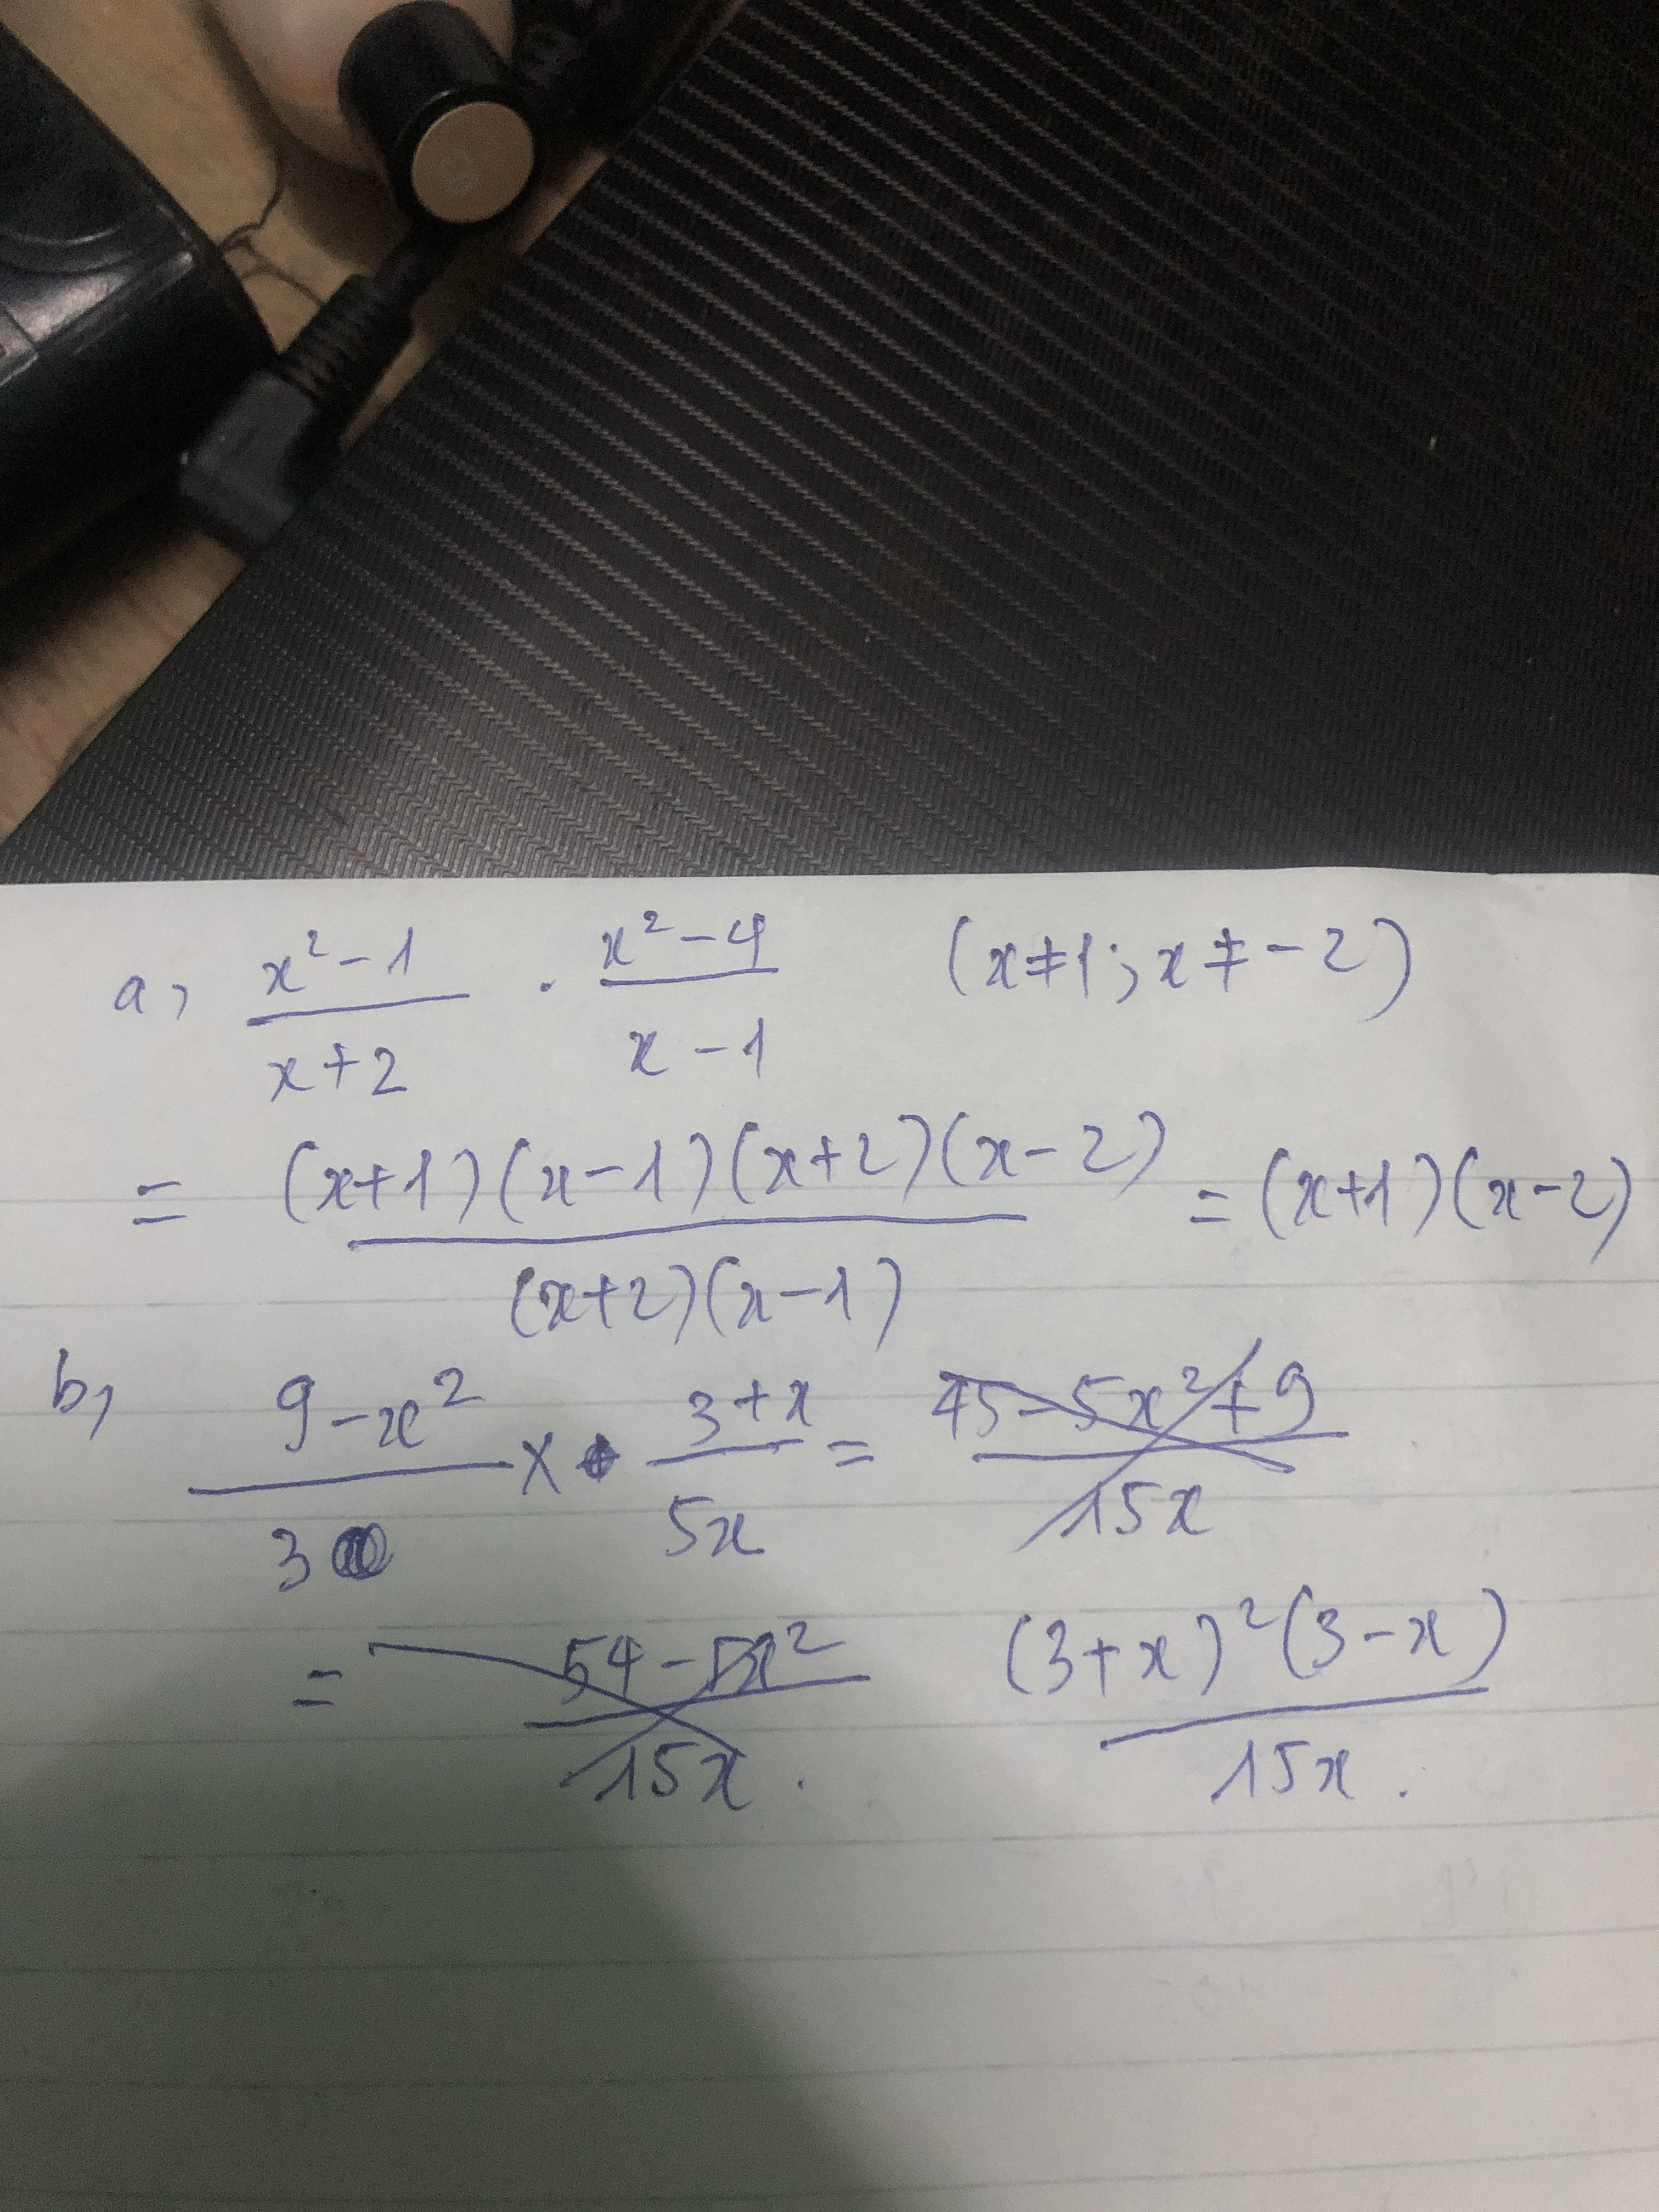 a, x² - 1 / x + 2 · x² - 4 / x - 1 (x ≠ 1; x ≠ - 2)
= (x+1)(x-1)(x+2)(x-2) / (x+2)(x-1) = (x+1)(x-2)
b, 9 - x² / 3 × 3 + x / 5x = 45 - 5x² + 9 / 15x
= 54 - 5x² / 15x . (3+x)²(3-x) / 15x .